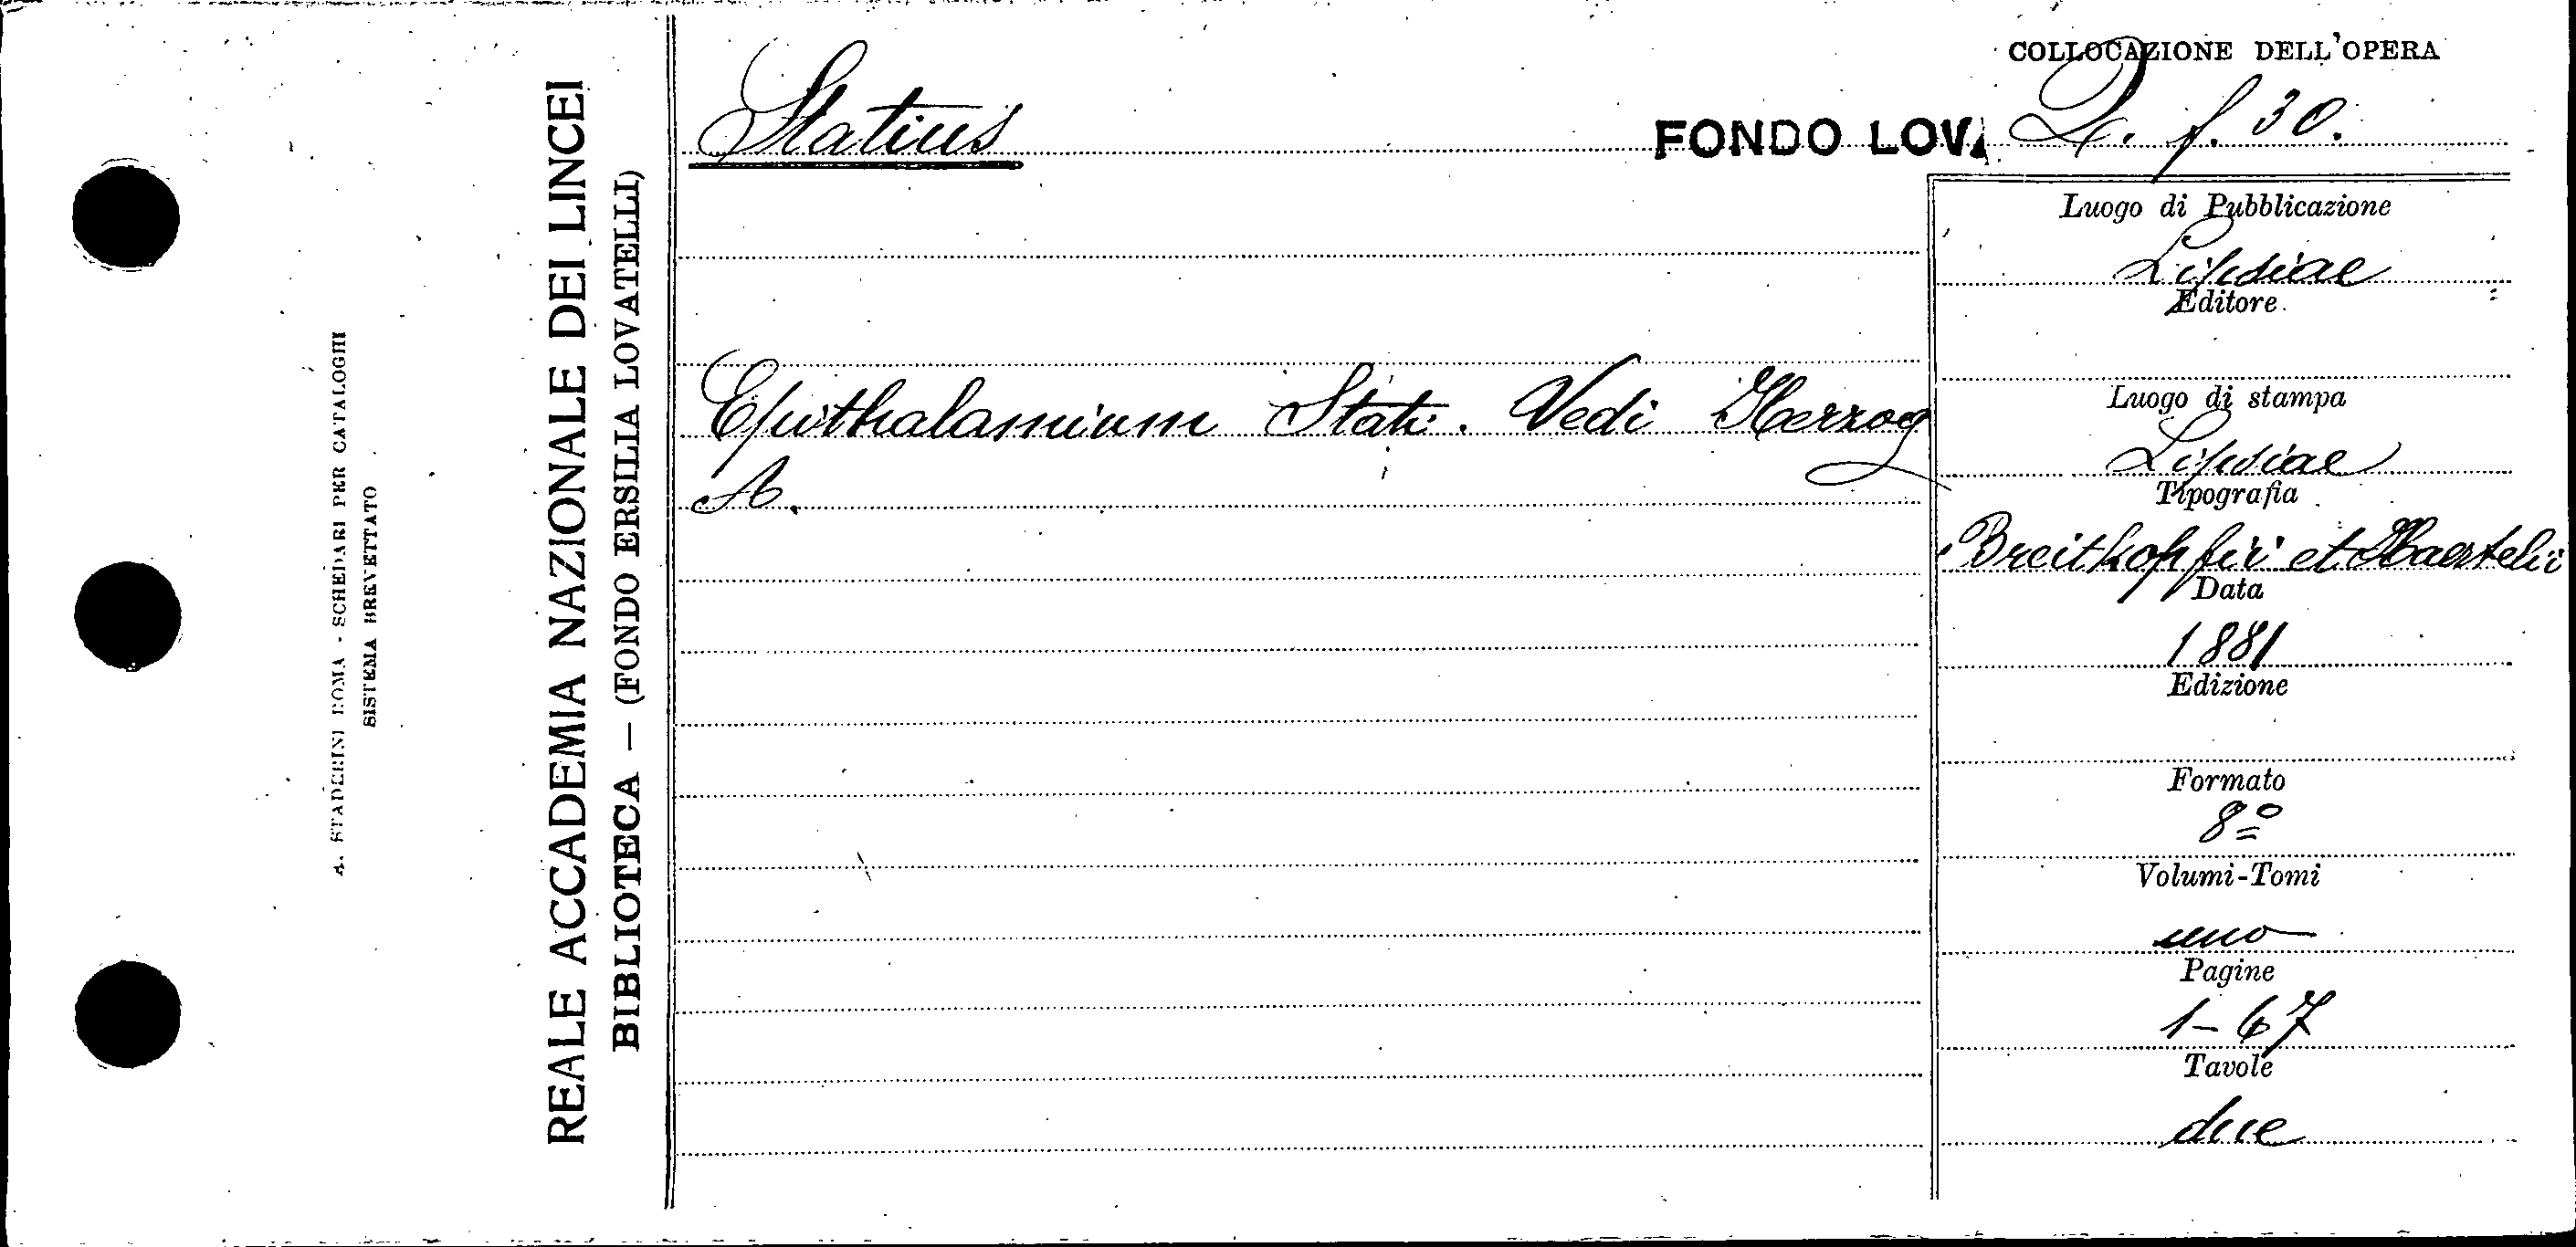 COLLOCAZIONE DELL'OPERA
Statius
FONDO LOV.
Q. f. 30.
Epithalamium Stati. Vedi Herzog
A.
Luogo di Pubblicazione
Lipsiae
Editore
Luogo di stampa
Lipsiae
Tipografia
Breitkopfii et Haertelii
Data
1881
Edizione
Formato
8º
Volumi-Tomi
uno
Pagine
1-67
Tavole
due
REALE ACCADEMIA NAZIONALE DEI LINCEI
BIBLIOTECA — (FONDO ERSILIA LOVATELLI)
A. STADERINI ROMA - SCHEDARI PER CATALOGHI
SISTEMA BREVETTATO